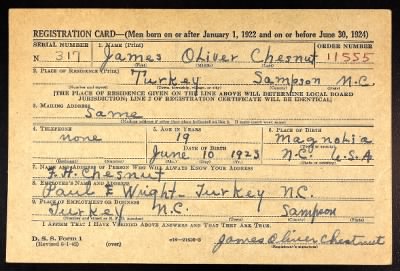 REGISTRATION CARD—(Men born on or after January 1, 1922 and on or before June 30, 1924)
SERIAL NUMBER 1. NAME (Print) ORDER NUMBER
N 317 James Oliver Chesnut 11555
(First) (Middle) (Last)
2. PLACE OF RESIDENCE (Print)
Turkey Sampson N.C.
(Number and street) (Town, township, village, or city) (County) (State)
[THE PLACE OF RESIDENCE GIVEN ON THE LINE ABOVE WILL DETERMINE LOCAL BOARD
JURISDICTION; LINE 2 OF REGISTRATION CERTIFICATE WILL BE IDENTICAL]
3. MAILING ADDRESS
Same
[Mailing address if other than place indicated on line 2. If same insert word same]
4. TELEPHONE 5. AGE IN YEARS 6. PLACE OF BIRTH
none 19 Magnolia
DATE OF BIRTH
June 10 1923 N.C. U.S.A
(Exchange) (Number) (Mo.) (Day) (Yr.) (State or country)
7. NAME AND ADDRESS OF PERSON WHO WILL ALWAYS KNOW YOUR ADDRESS
F.H. Chesnut
8. EMPLOYER'S NAME AND ADDRESS
Paul E Wright - Turkey N.C.
9. PLACE OF EMPLOYMENT OR BUSINESS
Turkey N.C. Sampson
(Number and street or R. F. D. number) (Town) (County) (State)
I AFFIRM THAT I HAVE VERIFIED ABOVE ANSWERS AND THAT THEY ARE TRUE.
D. S. S. Form 1
(Revised 6-1-42) (over) 16—21630-3 James Oliver Chestnut
(Registrant's signature)